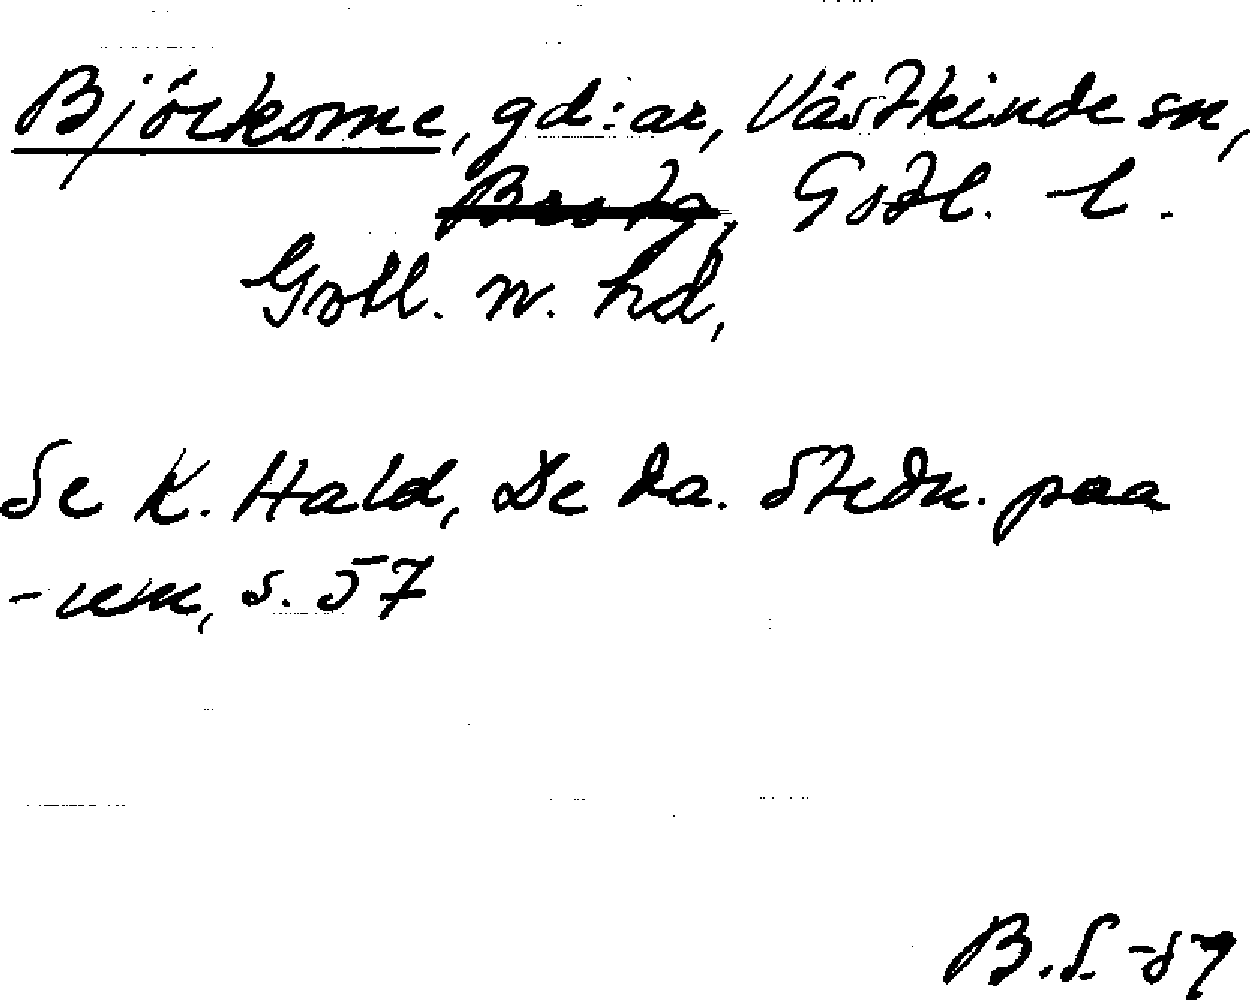 Björkome, gd:ar, Västkinde sn,
Gotl. l.
Gotl. n. hd,
Se K. Hald, De da. Stedn. paa
-um, s. 57
B.S-57